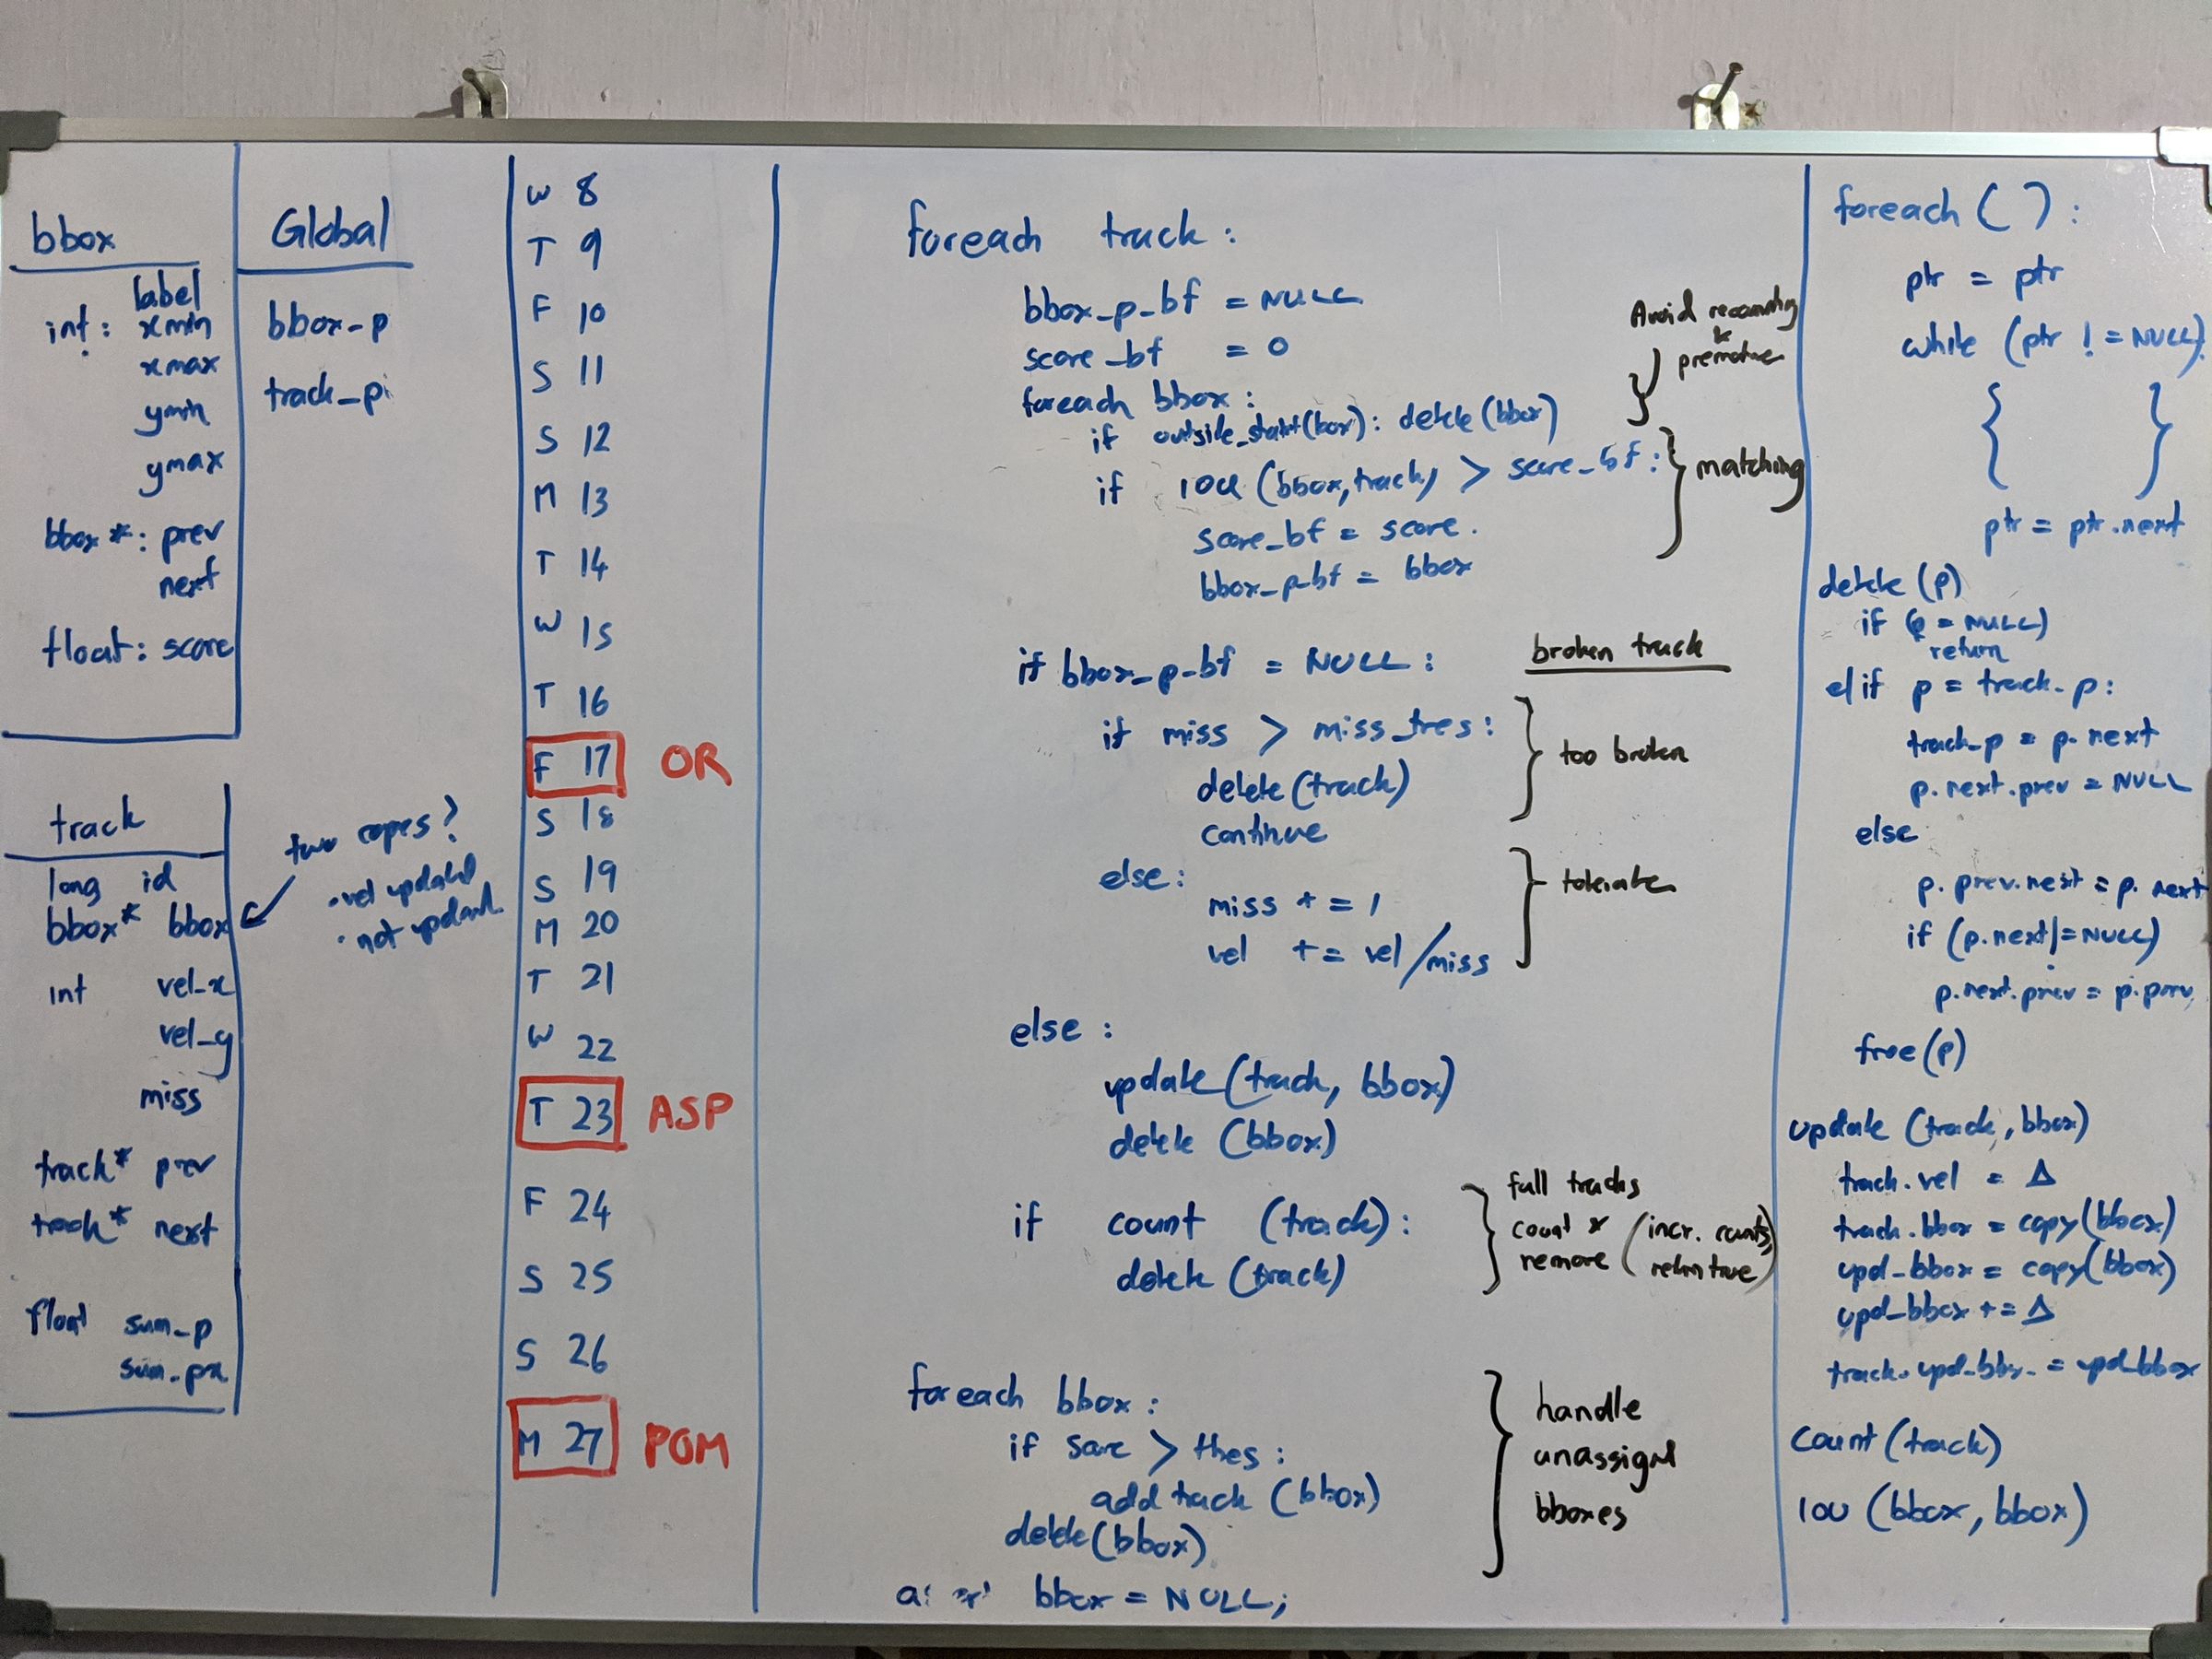 bbox
int: label
xmin
xmax
ymin
ymax
bbox*: prev
next
float: score
track
long id
bbox* bbox
int vel_x
vel_y
miss
track* prev
track* next
float sum_p
Global
bbox_p
track_p
two copies?
. vel updated
. not updated
W 8
T 9
F 10
S 11
S 12
M 13
T 14
W 15
T 16
F 17 OR
S 18
S 19
M 20
T 21
W 22
T 23 ASP
F 24
S 25
S 26
M 27 POM
foreach track:
bbox_p_bf = NULL
score_bf = 0
foreach bbox:
if outside_start(box): delete(bbox)
if IOU (bbox, track) > score_bf:
score_bf = score.
bbox_p_bf = bbox
Avoid recounting
&
premature
matching
if bbox_p_bf = NULL:
broken track
if miss > miss_tres:
delete(track)
continue
too broken
else:
miss += 1
vel += vel/miss
tolerate
else:
update(track, bbox)
delete (bbox)
if count (track):
delete (track)
full tracks
count & remove (incr. counts, return true)
foreach bbox:
if score > thes:
add track (bbox)
delete(bbox)
handle
unassignd
bboxes
bbox = NULL;
foreach ( ):
ptr = ptr
while (ptr != NULL)
{ }
ptr = ptr.next
delete (p)
if (p = NULL)
return
elif p = track_p:
track_p = p.next
p.next.prev = NULL
else
p.prev.next = p.next
if (p.next != NULL)
p.next.prev = p.prev
free(p)
update (track, bbox)
track.vel = Δ
track.bbox = copy(bbox)
upd_bbox = copy(bbox)
upd_bbox += Δ
track.upd_bbx = upd_bbox
Count(track)
IOU (bbox, bbox)